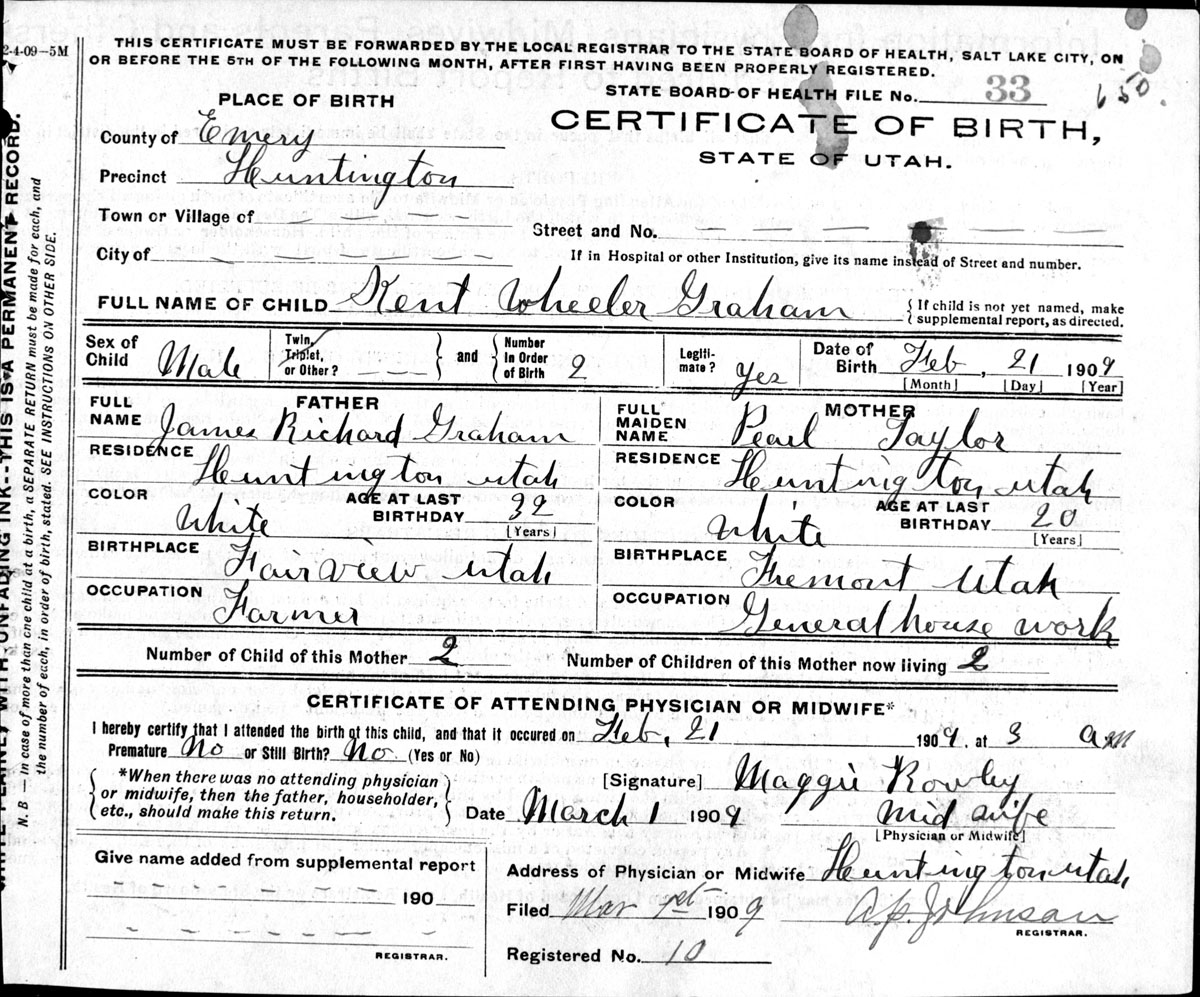 2-4-09—5M
THIS CERTIFICATE MUST BE FORWARDED BY THE LOCAL REGISTRAR TO THE STATE BOARD OF HEALTH, SALT LAKE CITY, ON
OR BEFORE THE 5TH OF THE FOLLOWING MONTH, AFTER FIRST HAVING BEEN PROPERLY REGISTERED.
STATE BOARD OF HEALTH FILE No. 33
650.
PLACE OF BIRTH
CERTIFICATE OF BIRTH,
STATE OF UTAH.
County of Emery
Precinct Huntington
Town or Village of — — — —
Street and No. — — — — — —
City of — — — — —
If in Hospital or other Institution, give its name instead of Street and number.
FULL NAME OF CHILD Kent Wheeler Graham
{ If child is not yet named, make
supplemental report, as directed.
Sex of Child Male
Twin, Triplet, or Other? — — —
and
Number in Order of Birth 2
Legiti-mate? Yes
Date of Birth Feb, 21 1909
[Month] [Day] [Year]
FATHER
FULL NAME James Richard Graham
RESIDENCE Huntington Utah
COLOR White
AGE AT LAST BIRTHDAY 32
[Years]
BIRTHPLACE Fairview, Utah
OCCUPATION Farmer
MOTHER
FULL MAIDEN NAME Pearl Taylor
RESIDENCE Huntington Utah
COLOR White
AGE AT LAST BIRTHDAY 20
[Years]
BIRTHPLACE Fremont Utah
OCCUPATION General house work
Number of Child of this Mother 2
Number of Children of this Mother now living 2
CERTIFICATE OF ATTENDING PHYSICIAN OR MIDWIFE*
I hereby certify that I attended the birth of this child, and that it occured on Feb, 21 1909. at 3 a m
Premature No or Still Birth? No. (Yes or No)
{ *When there was no attending physician
or midwife, then the father, householder,
etc., should make this return. }
[Signature] Maggie Rowley
Date March 1 1909
Mid wife
[Physician or Midwife]
Give name added from supplemental report
190
— — — — — —
REGISTRAR.
Address of Physician or Midwife Huntington Utah
Filed Mar 1st 1909
Johnson
REGISTRAR.
Registered No. 10
WITH UNFADING INK--THIS IS A PERMANENT RECORD.
N. B — In case of more than one child at a birth, a SEPARATE RETURN must be made for each, and
the number of each, in order of birth, stated. SEE INSTRUCTIONS ON OTHER SIDE.